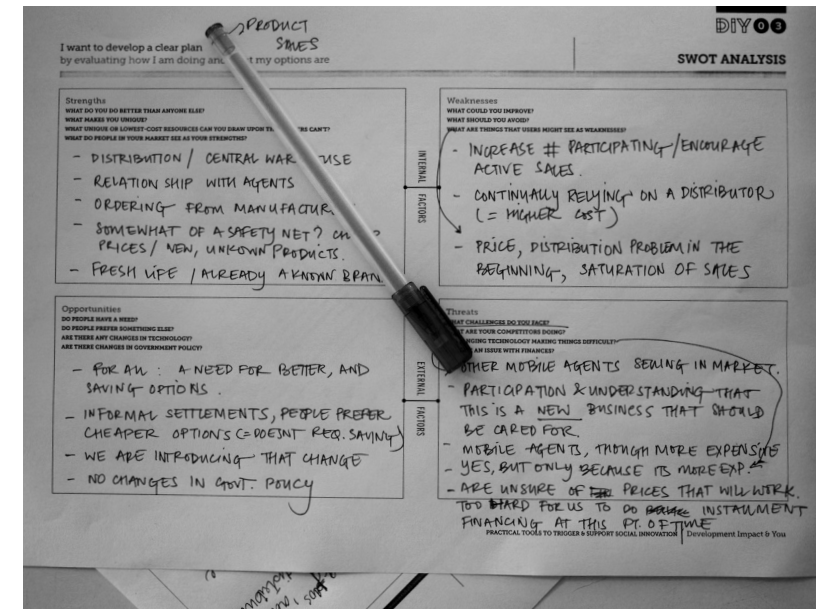 PRODUCT
SALES
DIY 03
I want to develop a clear plan
by evaluating how I am doing and what my options are
SWOT ANALYSIS
Strengths
WHAT DO YOU DO BETTER THAN ANYONE ELSE?
WHAT MAKES YOU UNIQUE?
WHAT UNIQUE OR LOWEST-COST RESOURCES CAN YOU DRAW UPON THAT OTHERS CAN'T?
WHAT DO PEOPLE IN YOUR MARKET SEE AS YOUR STRENGTHS?
- DISTRIBUTION / CENTRAL WAR USE
- RELATION SHIP WITH AGENTS
- ORDERING FROM MANUFACTUR
- SOMEWHAT OF A SAFETY NET?
PRICES / NEW, UNKOWN PRODUCTS.
- FRESH LIFE / ALREADY A KNOWN BRAN
INTERNAL FACTORS
Weaknesses
WHAT COULD YOU IMPROVE?
WHAT SHOULD YOU AVOID?
WHAT ARE THINGS THAT USERS MIGHT SEE AS WEAKNESSES?
- INCREASE # PARTICIPATING / ENCOURAGE
ACTIVE SALES.
- CONTINUALLY RELYING ON A DISTRIBUTOR
(= HIGHER COST)
- PRICE, DISTRIBUTION PROBLEM IN THE
BEGINNING, SATURATION OF SALES
Opportunities
DO PEOPLE HAVE A NEED?
DO PEOPLE PREFER SOMETHING ELSE?
ARE THERE ANY CHANGES IN TECHNOLOGY?
ARE THERE CHANGES IN GOVERNMENT POLICY?
- FOR ALL : A NEED FOR BETTER, AND
SAVING OPTIONS.
- INFORMAL SETTLEMENTS, PEOPLE PREFER
CHEAPER OPTIONS (= DOESNT REQ. SAVING)
- WE ARE INTRODUCING THAT CHANGE
- NO CHANGES IN GOVT. POLICY
EXTERNAL FACTORS
Threats
WHAT CHALLENGES DO YOU FACE?
WHAT ARE YOUR COMPETITORS DOING?
ANGING TECHNOLOGY MAKING THINGS DIFFICULT?
AN ISSUE WITH FINANCES?
- OTHER MOBILE AGENTS SELLING IN MARKET.
- PARTICIPATION & UNDERSTANDING THAT
THIS IS A NEW BUSINESS THAT SHOULD
BE CARED FOR.
- MOBILE AGENTS, THOUGH MORE EXPENSIVE
- YES, BUT ONLY BECAUSE ITS MORE EXP.
- ARE UNSURE OF PRICES THAT WILL WORK.
TOO HARD FOR US TO DO INSTALLMENT
FINANCING AT THIS PT. OF TIME
PRACTICAL TOOLS TO TRIGGER & SUPPORT SOCIAL INNOVATION | Development Impact & You